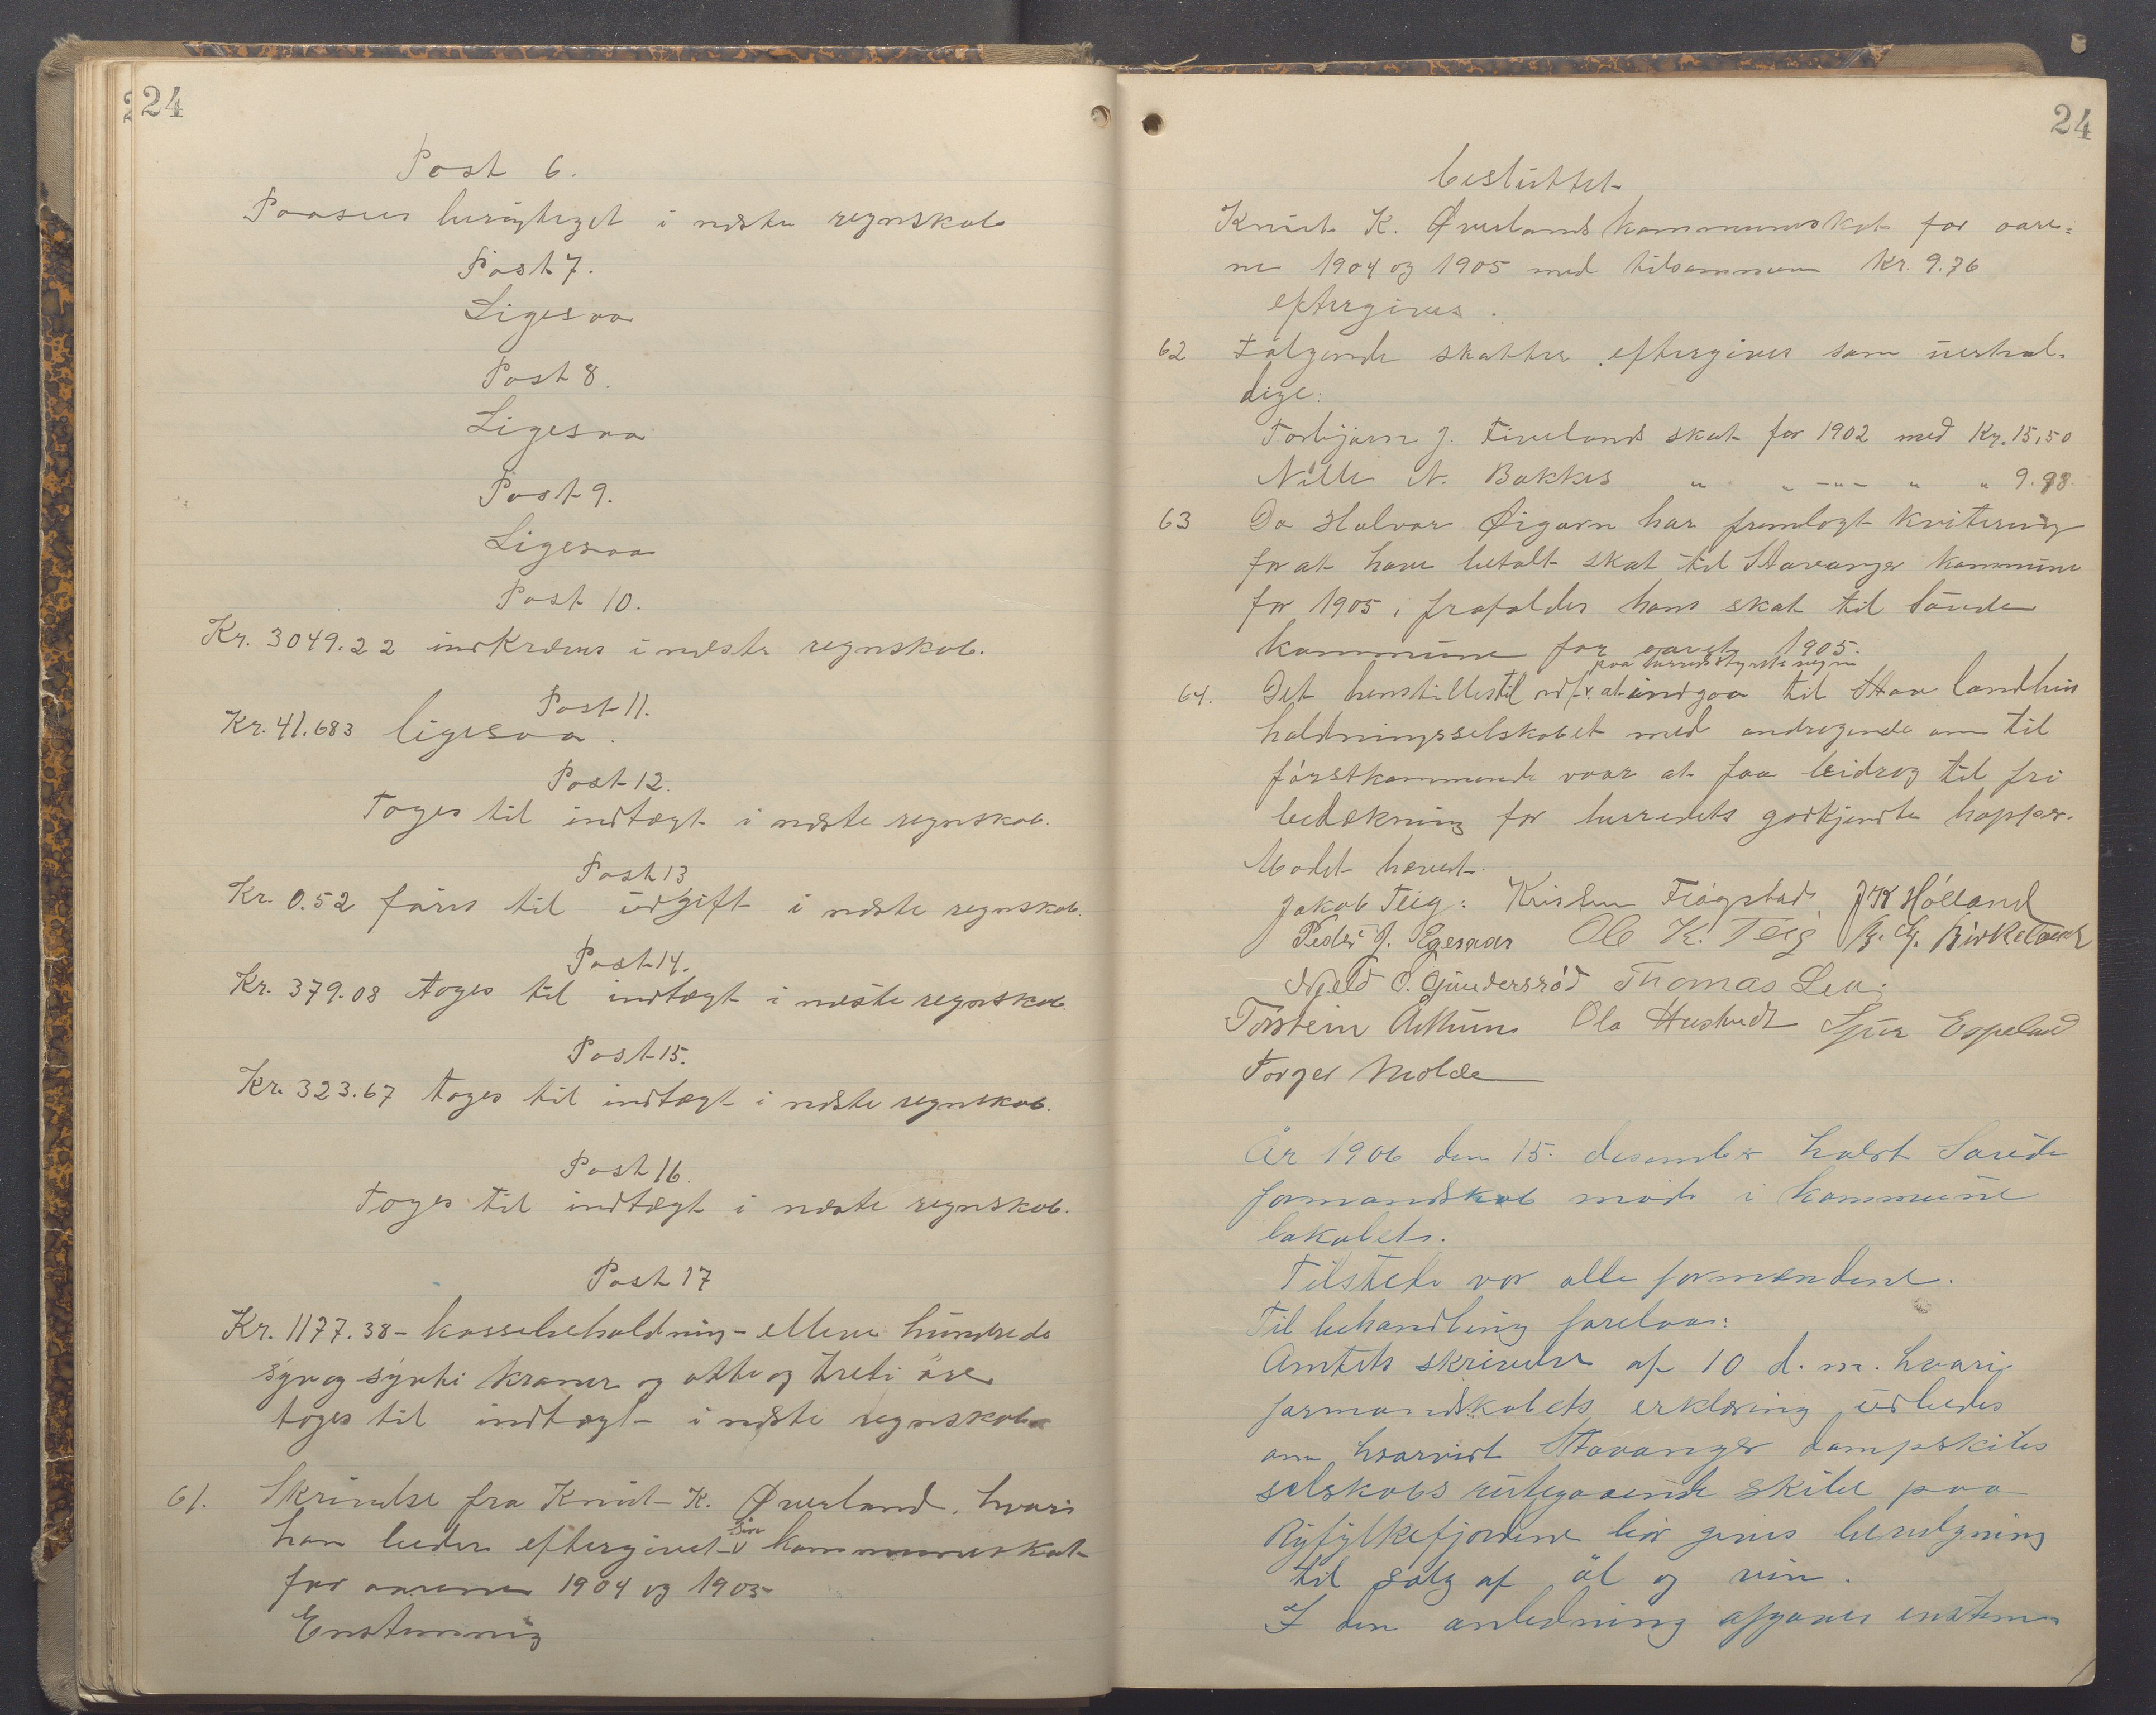 24
Post 6.
Paasees berigtiget i næste regnskab
Post 7.
Ligesaa
Post 8.
Ligesaa
Post 9.
Ligesaa
Post 10.
Kr. 3049.22 indkræves i næste regnskab.
Post 11.
Kr. 41.683 ligesaa.
Post 12.
Toges til indtægt i næste regnskab.
Post 13
Kr. 0.52 føres til udgift i næste regnskab.
Post 14.
Kr. 379.08 toges til indtægt i næste regnskab.
Post 15.
Kr. 323.67 toges til indtægt i næste regnskab.
Post 16.
Toges til indtægt i næste regnskab.
Post 17
Kr. 1177.38 – kassebeholdning – elleve hundrede
syv og sytti kroner og otte og treti øre
toges til indtægt i næste regnskab
61. Skrivelse fra Knut K. Øverland, hvori
han beder eftergivet sin kommuneskat
for aarene 1904 og 1905
Enstemmig
24
besluttet
Knut K. Øverlands kommuneskat for aare=
ne 1904 og 1905 med tilsammen Kr. 9.76
eftergives.
62 Følgende skatter eftergives som uerhol-
dige:
Torbjørn J. Fivelands skat for 1902 med Kr. 15,50
Nille N. Bakkes " " -"- " " 9.98
63 Da Halvor Øigarn har fremlagt kvitering
for at have betalt skat til Stavanger kommune
for 1905, frafalder hans skat til Saude
kommune for aaret 1905.
paa herredsstyrets vegne
64. Det henstilles til ordf. at indgaa til Stav landhus
holdningsselskabet med andragende om til
førstkommende vaar at faa bidrag til fri
bedækning for herredets godkjendte hopper.
Mødet hævet.
Jakob Teig. Kristen Fløgstad J K Hölland
Peder J. Egenæs Ole K. Teig G. G. Birkeland
Njeld O. Gundersrød Thomas Lea
Torstein Østhun Ola Hustvedt Sjur Espeland
Torger Molde
År 1906 den 15. desember holdt Saude
formandskab møde i kommune
lokalets.
Tilstede var alle formændene.
Til behandling forelaa:
Amtets skrivelse af 10 d. m. hvori
formandskabets erklæring udbedes
om hvorvidt Stavanger dampskibs
selskabs rutegaaende skibe paa
Ryfylkefjordene bør gives bevilgning
til salg af øl og vin.
I den anledning afgaves enstem-